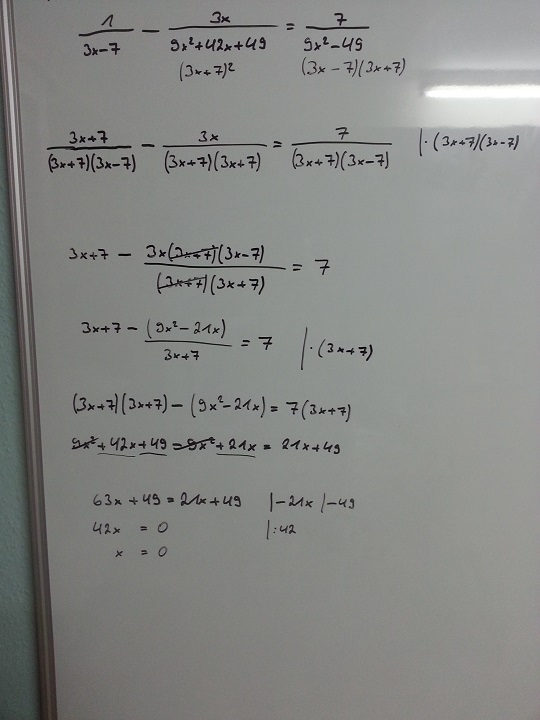 1/(3x-7) - 3x/(9x²+42x+49) = 7/(9x²-49)
(3x+7)² (3x-7)(3x+7)
(3x+7)/((3x+7)(3x-7)) - 3x/((3x+7)(3x+7)) = 7/((3x+7)(3x-7)) |·(3x+7)(3x-7)
3x+7 - (3x(3x+7)(3x-7))/((3x+7)(3x+7)) = 7
3x+7 - (9x²-21x)/(3x+7) = 7 |·(3x+7)
(3x+7)(3x+7) - (9x²-21x) = 7(3x+7)
9x²+42x+49 - 9x²+21x = 21x+49
63x+49 = 21x+49 |-21x |-49
42x = 0 |:42
x = 0